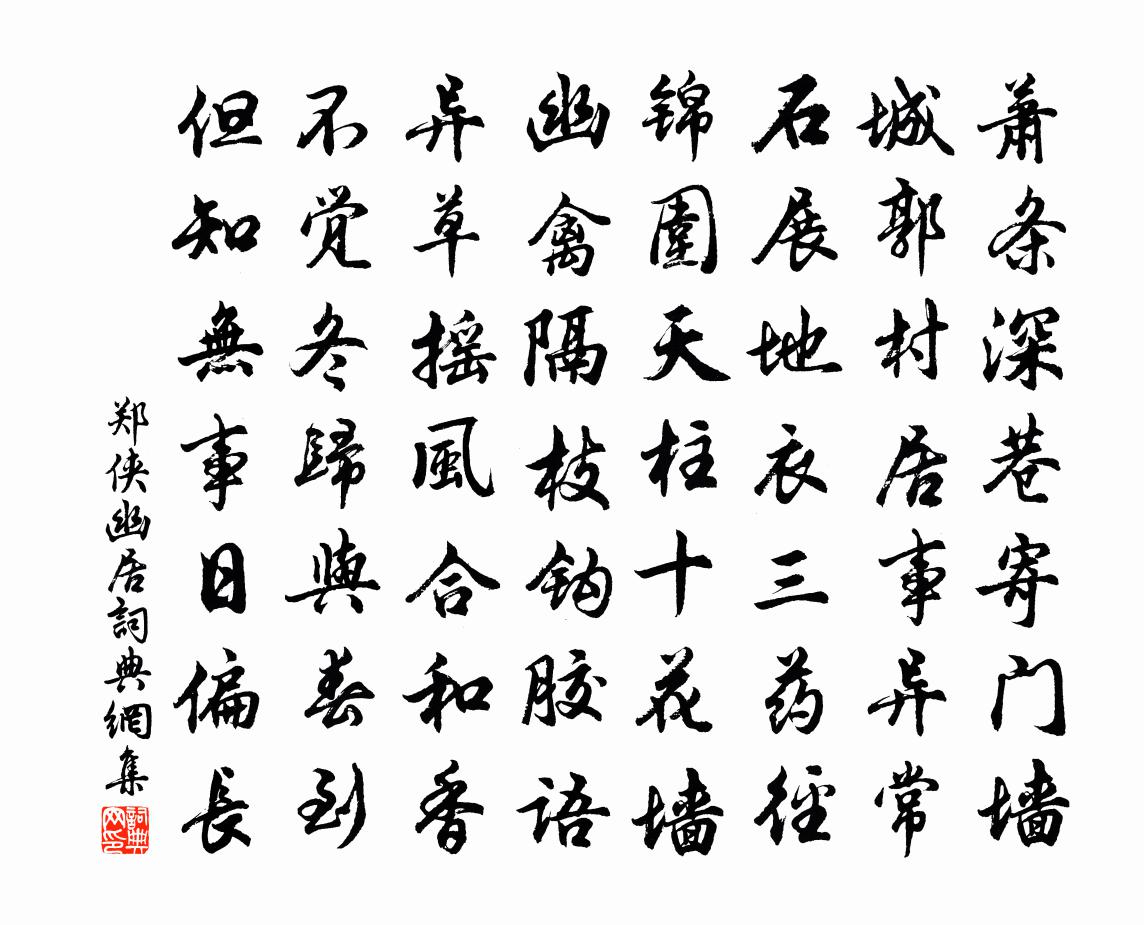 萧条深巷寄门墙
城郭村居事异常
石展地衣三药径
锦围天柱十花墙
幽禽隔枝钩胶语
异草摇风合和香
不觉冬歸與春到
但知無事日偏長
郑侠幽居詞典網集
詞典网印